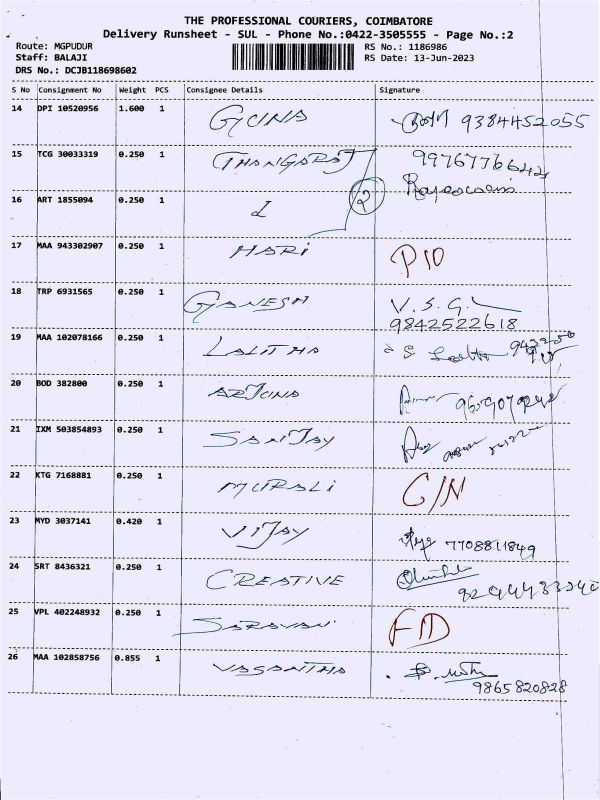 THE PROFESSIONAL COURIERS, COIMBATORE
Delivery Runsheet - SUL - Phone No.:0422-3505555 - Page No.:2
Route: MGPUDUR RS No.: 1186986
Staff: BALAJI RS Date: 13-Jun-2023
DRS No.: DCJB118698602
S No Consignment No Weight PCS Consignee Details Signature
14 DPI 10520956 1.600 1 GUNA 9384452055
15 TCG 30033319 0.250 1 THANGARAJ
16 ART 1855094 0.250 1 2
17 MAA 943302907 0.250 1 HARI
18 TRP 6931565 0.250 1 GANESH V.S.G.
9842522618
19 MAA 102078166 0.250 1 LALITHA
20 BOD 382800 0.250 1 ARJUNA
21 IXM 503854893 0.250 1 SANJAY
22 KTG 7168881 0.250 1 MURALI C/N
23 MYD 3037141 0.420 1 VIJAY 7708811849
24 SRT 8436321 0.250 1 CREATIVE
25 VPL 402248932 0.250 1 SARAVAN
26 MAA 102858756 0.855 1 VASANTHA
9865820828